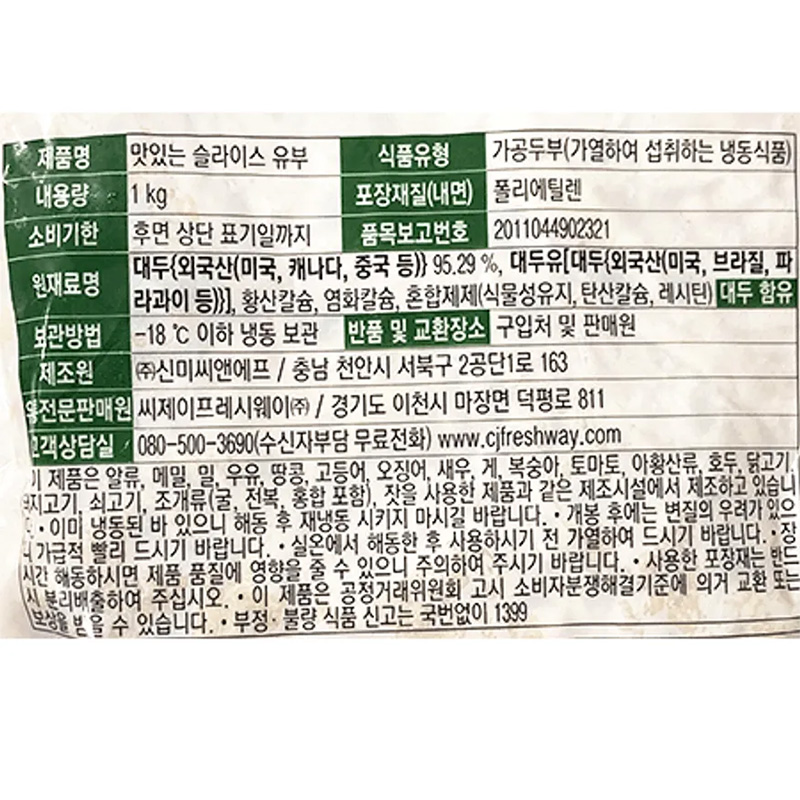 제품명 맛있는 슬라이스 유부 식품유형 가공두부(가열하여 섭취하는 냉동식품)
내용량 1 kg 포장재질(내면) 폴리에틸렌
소비기한 후면 상단 표기일까지 품목보고번호 2011044902321
원재료명 대두{외국산(미국, 캐나다, 중국 등)} 95.29 %, 대두유[대두{외국산(미국, 브라질, 파
라과이 등)}], 황산칼슘, 염화칼슘, 혼합제제(식물성유지, 탄산칼슘, 레시틴) 대두 함유
보관방법 -18 ℃ 이하 냉동 보관 반품 및 교환장소 구입처 및 판매원
제조원 ㈜신미씨앤에프 / 충남 천안시 서북구 2공단1로 163
전문판매원 씨제이프레시웨이㈜ / 경기도 이천시 마장면 덕평로 811
고객상담실 080-500-3690(수신자부담 무료전화) www.cjfreshway.com
기 제품은 알류, 메밀, 밀, 우유, 땅콩, 고등어, 오징어, 새우, 게, 복숭아, 토마토, 아황산류, 호두, 닭고기,
돼지고기, 쇠고기, 조개류(굴, 전복, 홍합 포함), 잣을 사용한 제품과 같은 제조시설에서 제조하고 있습니
다. • 이미 냉동된 바 있으니 해동 후 재냉동 시키지 마시길 바랍니다. • 개봉 후에는 변질의 우려가 있으
니 가급적 빨리 드시기 바랍니다. • 실온에서 해동한 후 사용하시기 전 가열하여 드시기 바랍니다. • 장
시간 해동하시면 제품 품질에 영향을 줄 수 있으니 주의하여 주시기 바랍니다. • 사용한 포장재는 반드
시 분리배출하여 주십시오. • 이 제품은 공정거래위원회 고시 소비자분쟁해결기준에 의거 교환 또는
보상을 받을 수 있습니다. • 부정·불량 식품 신고는 국번없이 1399